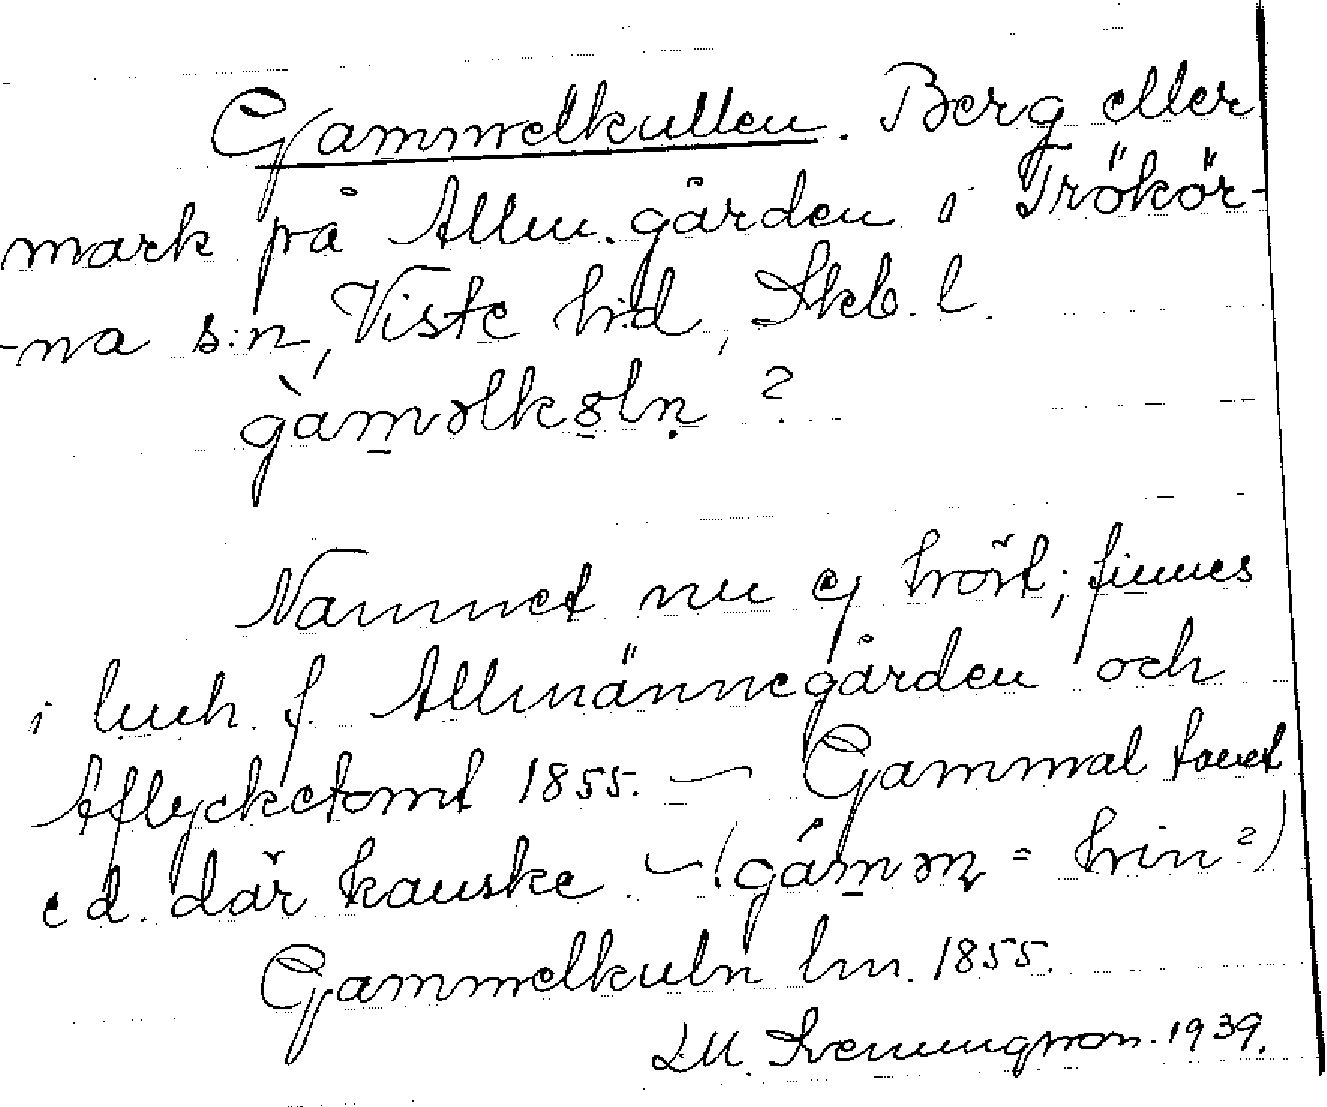 Gammelkullen. Berg eller
mark på Allm. gården i Trökör-
-na s:n, Viste hd, Skb. l.
gàməlkɷln̥ ?
Namnet nu ej hört; finnes
i lmh. f. Allmännegården och
Aflycketomt 1855. — Gammal tomt
e d. där kanske. — (gám̱əɱ = hin?)
Gammelkuln lm. 1855.
D.M. Svenningson. 1939.